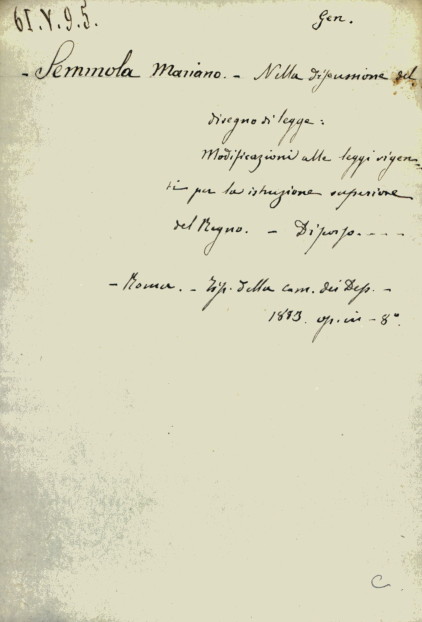 61.V.9.5.
Gen.
- Semmola Mariano. - Nella discussione del
disegno di legge:
Modificazioni alle leggi vigen=
ti per la istruzione superiore
del Regno. - Discorso. - - -
- Roma. - Tip. della cam. dei Dep. -
1883. op. in - 8°.
C